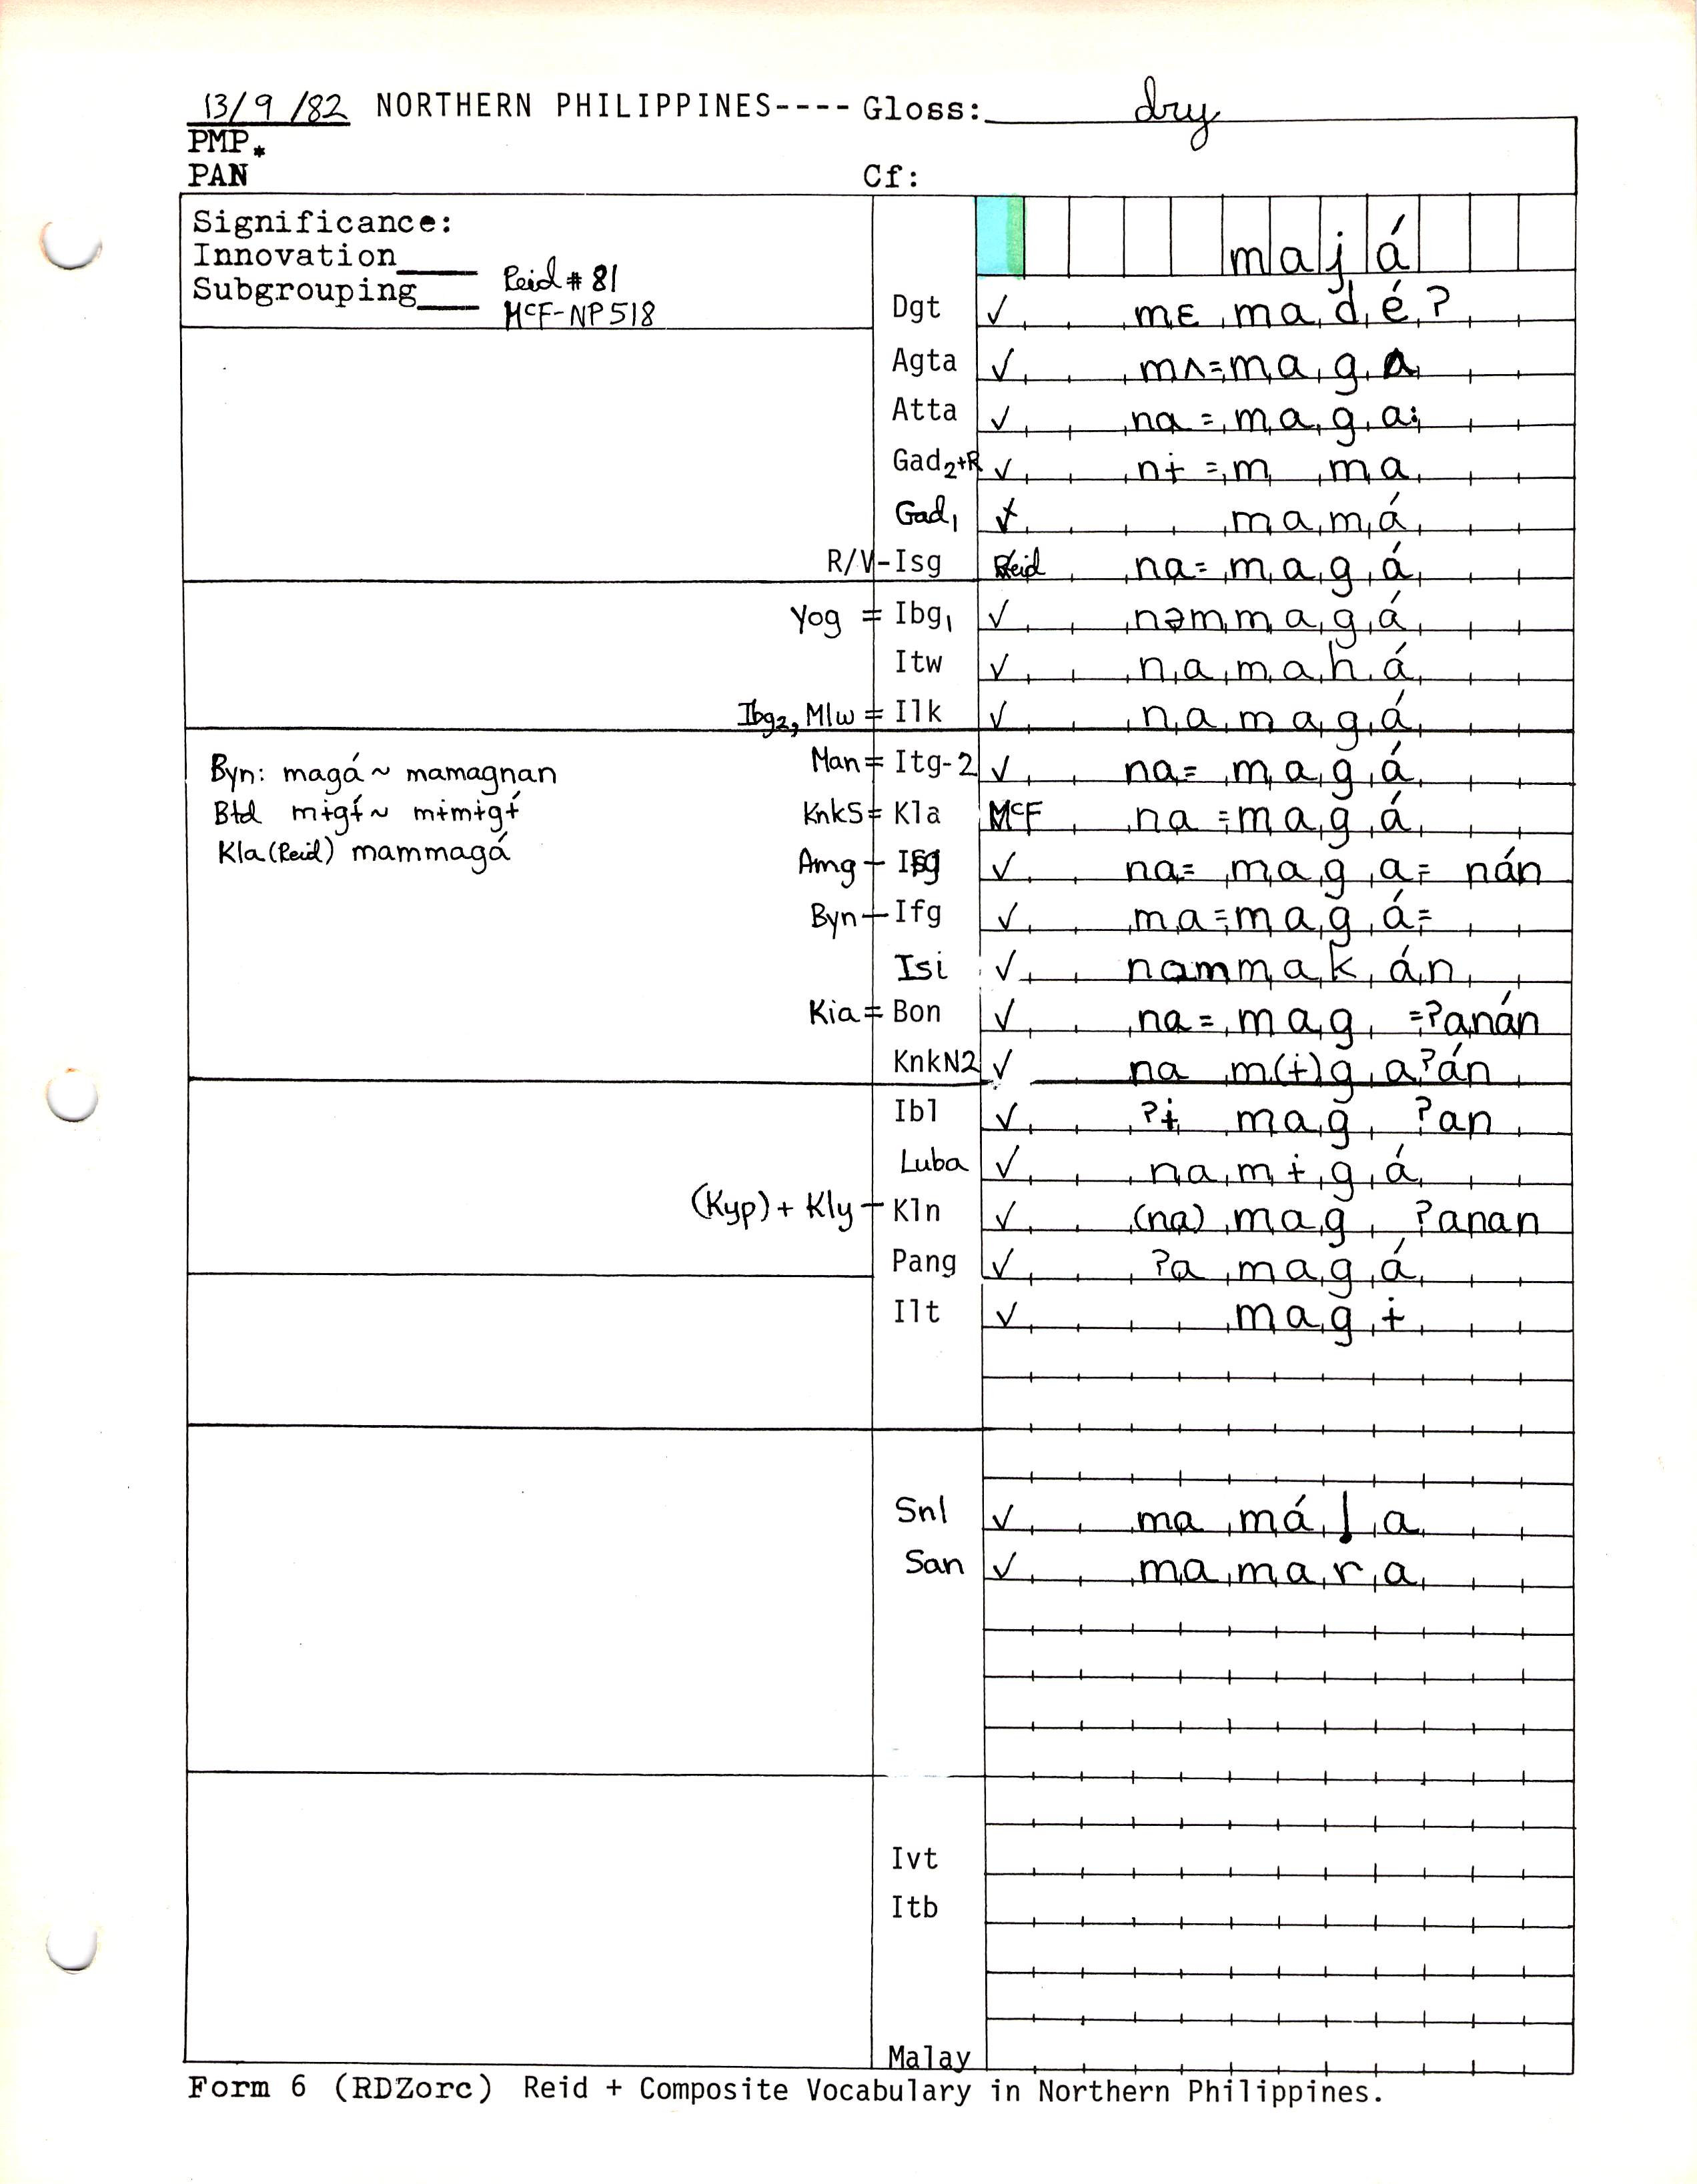 13/9/82 NORTHERN PHILIPPINES---- Gloss: dry
PMP*
PAN Cf:
Significance:
Innovation____
Subgrouping____
Reid # 81
McF-NP518
majá
Dgt ✓ mɛ madé?
Agta ✓ mʌ=maga
Atta ✓ na=maga:
Gad2+R ✓ nɨ=m ma
Gad1 ✓ mamá
R/V-Isg Reid na=magá
Yog = Ibg1 ✓ nəmmagá
Itw ✓ namahá
Ibg2, Mlw = Ilk ✓ namagá
Man = Itg-2 ✓ na=magá
KnkS = Kla McF na=magá
Amg - ✓ na=maga=nán
Byn - Ifg ✓ ma=magá=
Isi ✓ nammakán
Kia = Bon ✓ na=mag =?anán
KnkN2 ✓ na m(ɨ)ga?án
Byn: magá ~ mamagnan
Btd mɨgɨ́ ~ mɨmɨgɨ́
Kla (Reid) mammagá
Ibl ✓ ?ɨ mag ?an
Luba ✓ namɨgá
(Kyp) + Kly - Kln ✓ (na) mag ?anan
Pang ✓ ?a magá
Ilt ✓ magɨ
Snl ✓ ma máḷa
San ✓ mamara
Ivt
Itb
Malay
Form 6 (RDZorc) Reid + Composite Vocabulary in Northern Philippines.